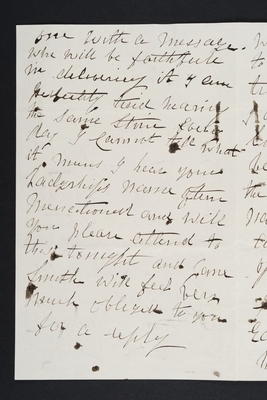 one with a message.
who will be faithful
in delivering it I am
perfectly tired hearing
the same story every
day I cannot tell what
it means I hear your
Ladyships name often
mentioned and will
you please attend to
this tonight and Anne
Smith will feel very
much obliged to you
for a reply